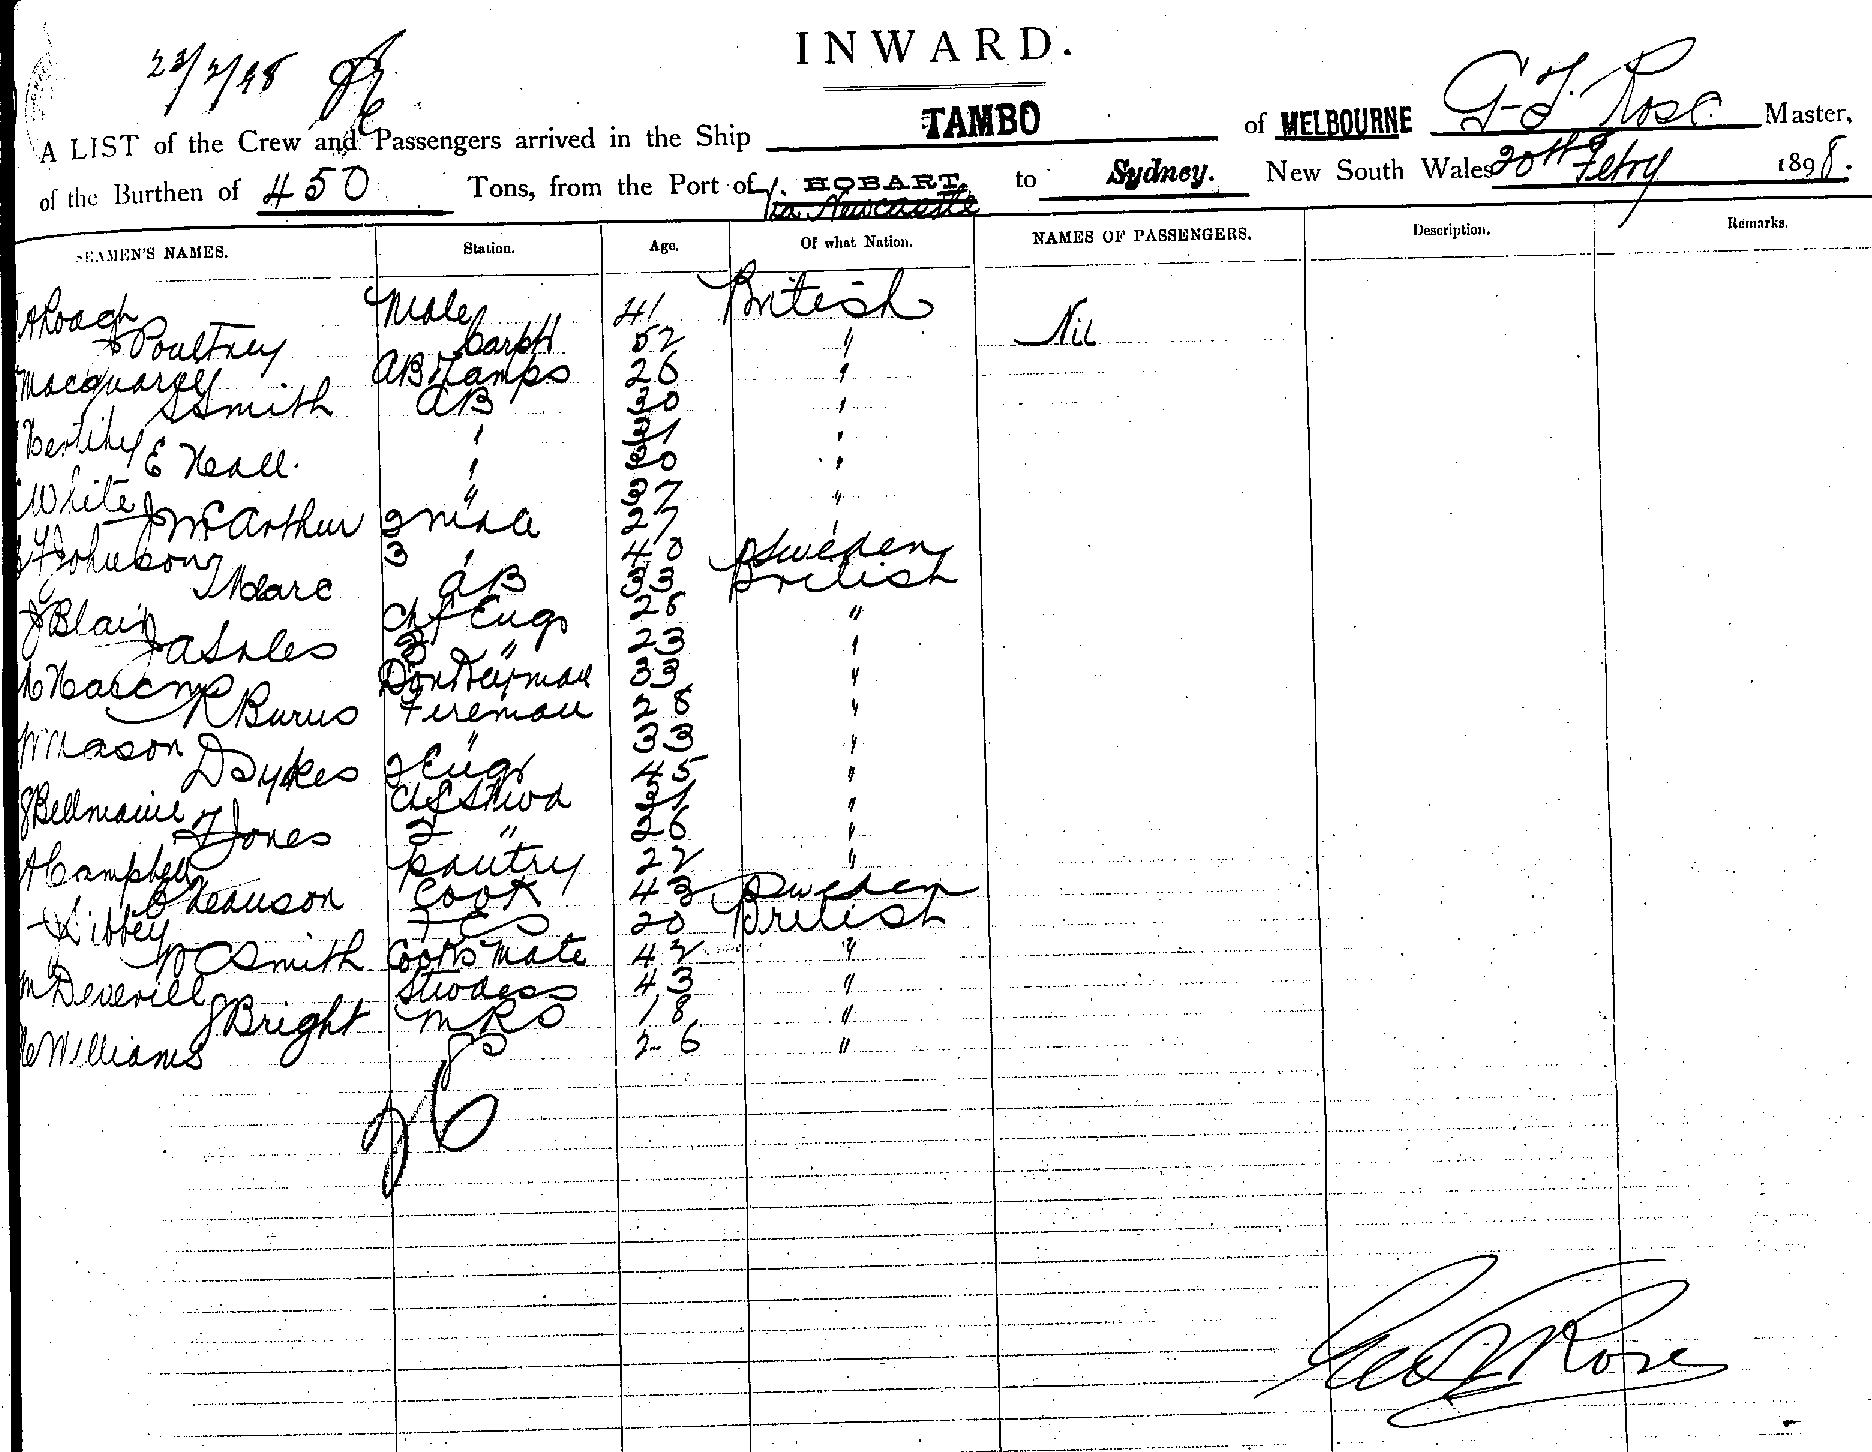 INWARD.
A LIST of the Crew and Passengers arrived in the Ship TAMBO of MELBOURNE G F Rose Master,
of the Burthen of 450 Tons, from the Port of HOBART to Sydney. New South Wales 20th Febry 1898.
via Newcastle
SEAMEN'S NAMES. Station. Age. Of what Nation. NAMES OF PASSENGERS. Description. Remarks.
A Roach Mate 41 British Nil
Poultney Carptr 52 "
Macquarey AB Lamps 26 "
S Smith AB "
"
E Neall "
White " "
J McArthur 2 mate 27
Johnson 3 " 40 Sweden
AB 33 British
J Blair Chf Engr "
J A Sales 3 " 23 "
Donkeyman 33 "
R Burns Fireman 28 "
W Mason " 33 "
D Sykes 2 Engr 45 "
J Bellmaine Chf Stwd "
F Jones 2 " 26 "
A Campbell pantry 22 "
Cook 43 Sweden
Libbey F C S 20 British
W C Smith Cooks Mate 42 "
M Deverill Stwdess 43 "
J Bright M R S 18 "
Williams 26 "
Geo F Rose